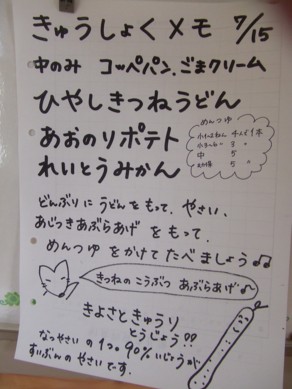 きゅうしょくメモ 7/15
中のみ コッペパン、ごまクリーム
ひやしきつねうどん
あおのりポテト
れいとうみかん
めんつゆ
中
どんぶりに うどんを もって、やさい、
あじつきあぶらあげ をもって、
めんつゆ をかけて たべましょう♫♪
きつねの こうぶつ あぶらあげ♪
きよさときゅうり
とうじょう!!
なつやさいの 1つ。90%いじょうが
すいぶんの やさいです。